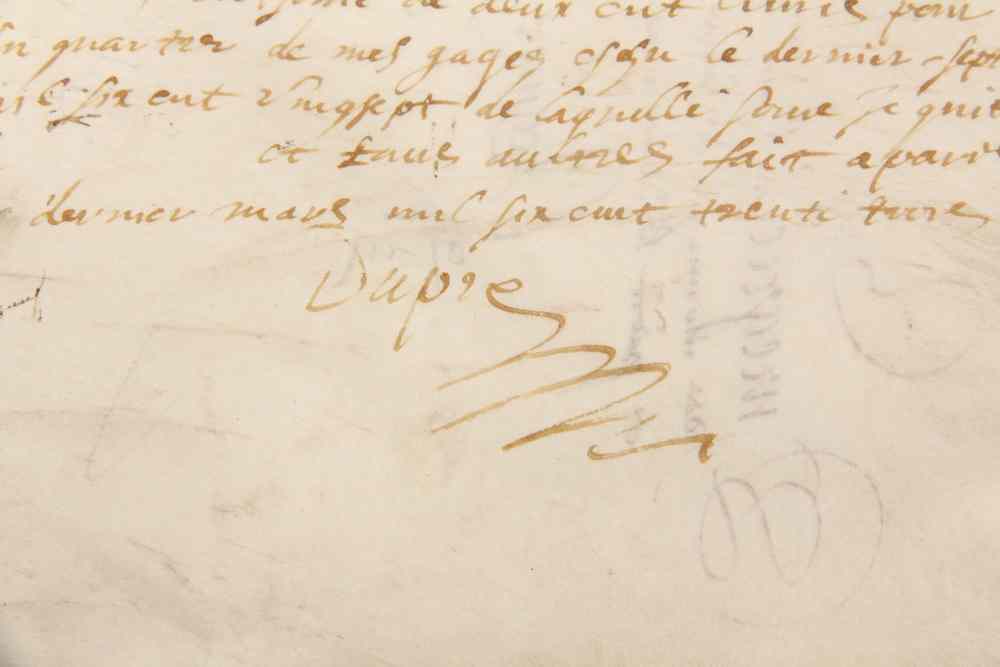 de deux cent livres pour
un quartier de mes gages escheu le dernier sept
mil six cent vingsept de laquelle some je quit
et tous autres fait a paris
dernier mars mil six cent trente trois
Dupre